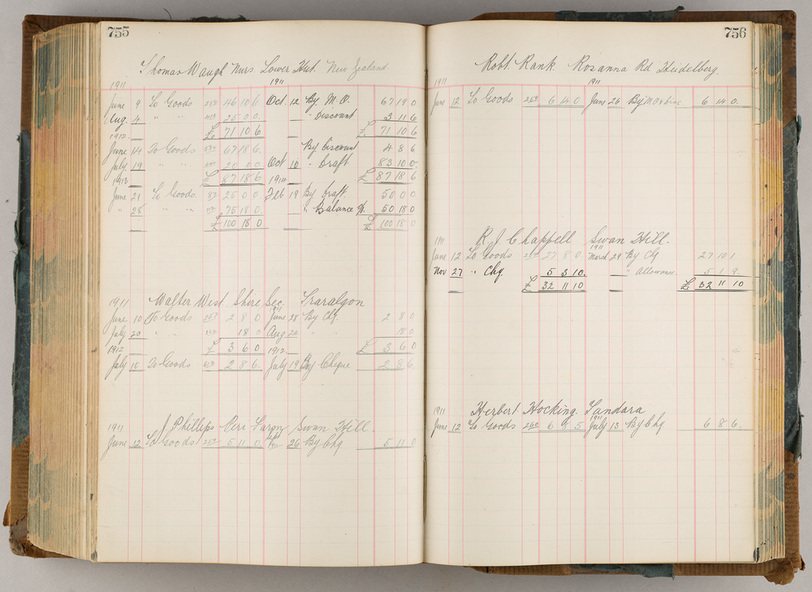 755
Thomas Waugh Nurs Lower Hut. New Zealand
1911 1911
June 9 To Goods 46 10 6 Oct 12 By M.O. 67 19 0
Aug 4 " " 25 0 0 " Discount 3 11 6
1912 £ 71 10 6 £ 71 10 6
June 14 To Goods 67 18 6 By Discount 4 8 6
July 19 " " 20 0 0 Oct 10 " Draft 83 10 0
1913 £ 87 18 6 1914 £ 87 18 6
June 21 To Goods 25 0 0 Feb 19 By Draft 50 0 0
" 28 " " 75 18 0 " Balance 50 18 0
£ 100 18 0 £ 100 18 0
1911 Walter West Shire Sec. Traralgon
June 10 To Goods 257 2 8 0 June 28 By Chq 2 8 0
July 20 " " 18 0 Aug 20 " " 18 0
1912 £ 3 6 0 1912 £ 3 6 0
July 10 To Goods 2 8 6 July 19 By Cheque 2 8 6
1911 J Phillips Swan Hill
June 12 To Goods 252 5 11 0 26 By Chq 5 11 0
756
Robt. Rank Rosanna Rd Heidelberg
1911 1911
June 12 To Goods 252 6 4 0 June 26 By 6 4 0
1911 R J Chappell Swan Hill.
June 12 To Goods 27 8 0 March 29 By Chq 27 10 1
Nov 27 " Chq 5 3 10 " Allowance 5 1 9
£ 32 11 10 £ 32 11 10
1911 Herbert Hocking. Tandara
June 12 To Goods 252 6 5 July 13 By Chq 6 8 6